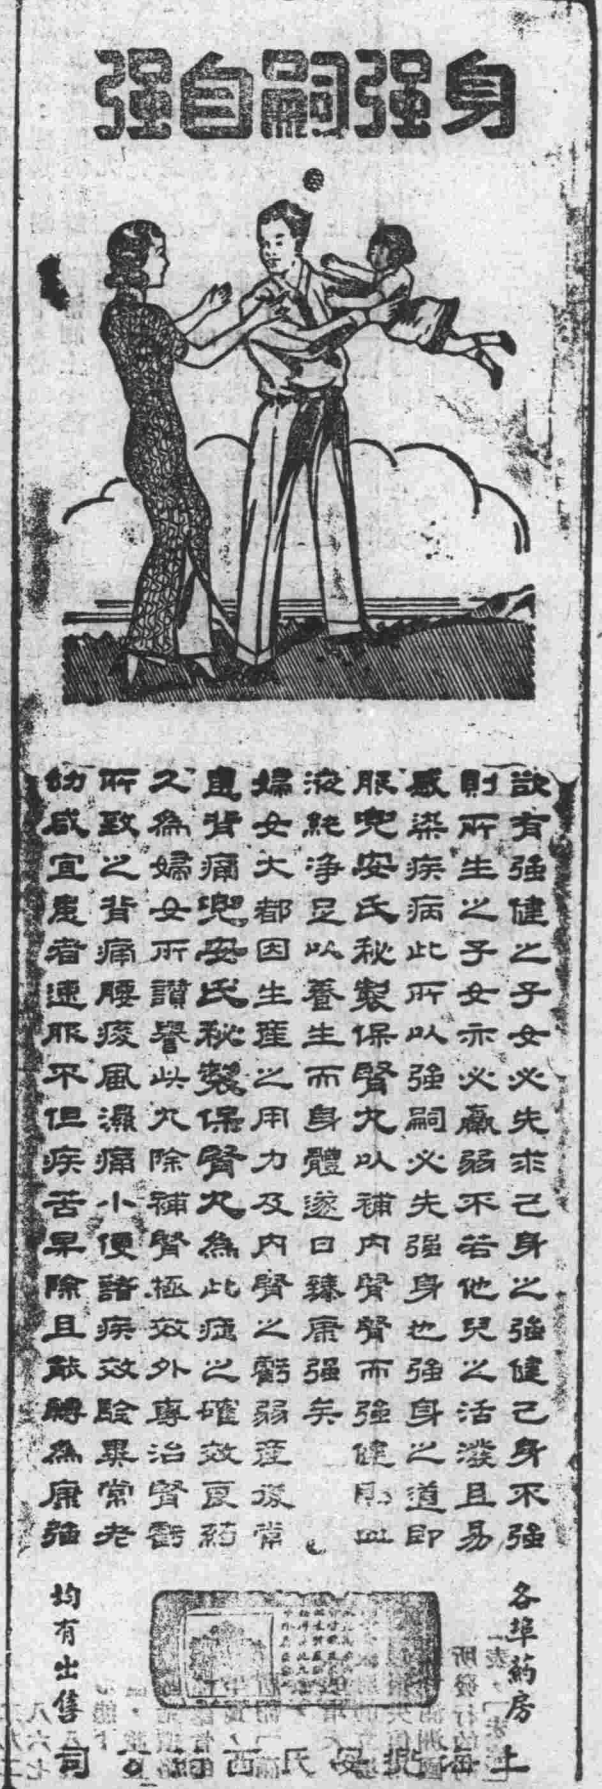 身强嗣自强
欲有強健之子女必先求己身之強健己身不強
則所生之子女亦必羸弱不若他兒之活潑且易
感染疾病此所以強嗣必先強身也強身之道即
服兜安氏秘製保腎丸以補內腎腎而強健則血
液純净足以養生而身體遂日臻康強矣
婦女大都因生產之用力及內腎之虧弱產後常
患背痛兜安氏秘製保腎丸為此症之確效良药
久為婦女所讚譽此丸除補腎極效外專治腎虧
所致之背痛腰痠風濕痛小便諸疾效驗異常老
幼咸宜患者速服不但疾苦早除且能轉為康強
各埠药房
均有出售
上海兜安氏西药公司